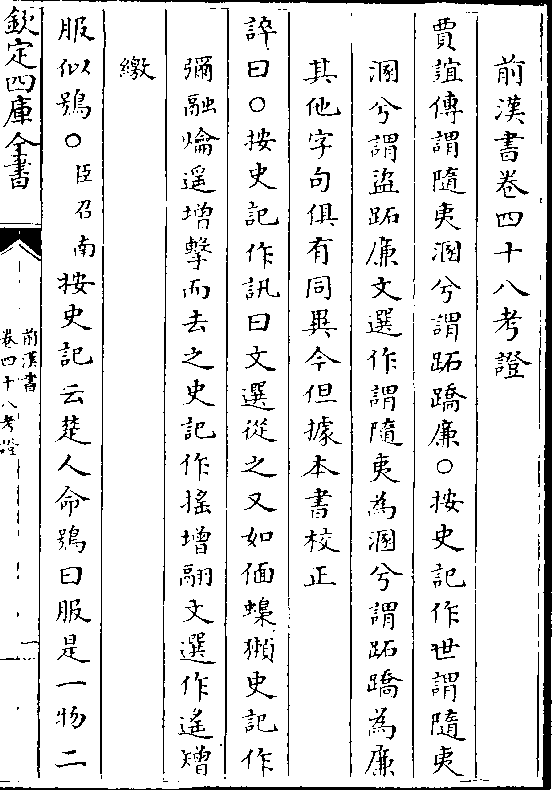 前漢書卷四十八考證
賈誼傳謂隨夷溷兮謂跖蹻廉○按史記作世謂隨夷
溷兮謂盜跖廉文選作謂隨夷為溷兮謂跖蹻為廉
其他字句俱有同異今但據本書校正
誶曰○按史記作訊曰文選從之又如偭蟂獺史記作
彌融爚遥增擊而去之史記作搖增翮文選作遥矰
繳
服似鴞○臣召南按史記云楚人命鴞曰服是一物二
欽定四庫全書
前漢書
卷四十八考證
一